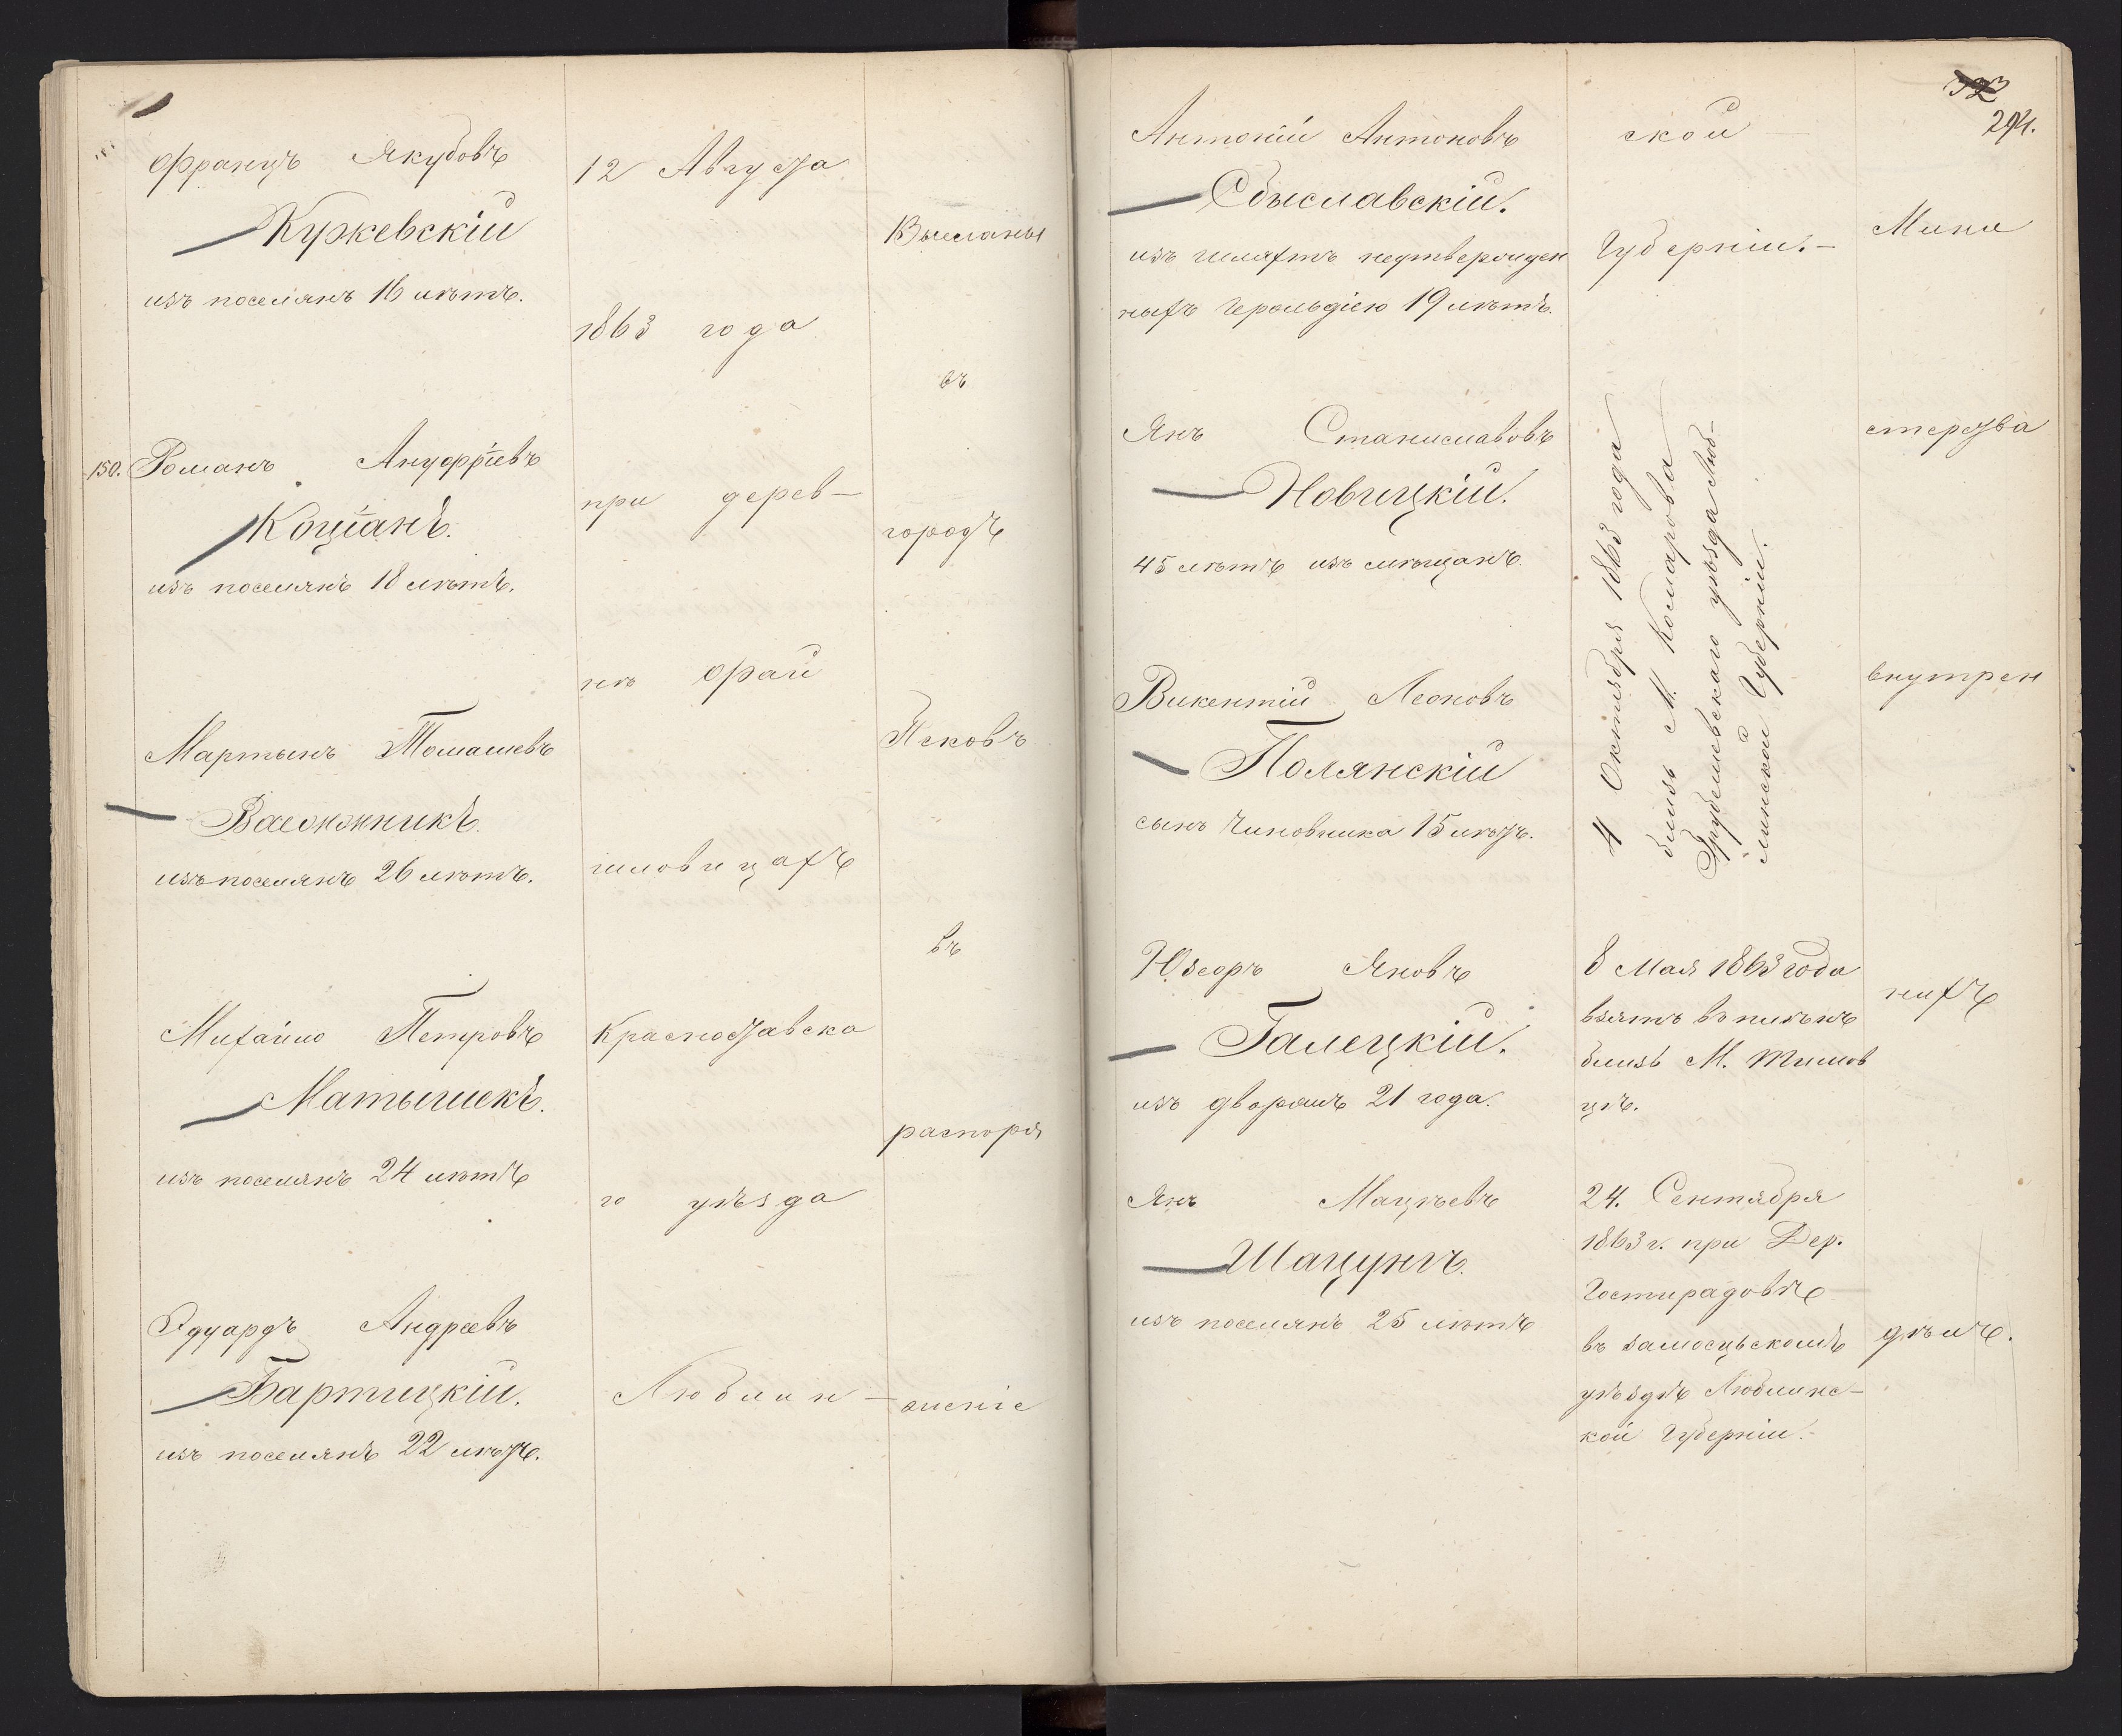 Францъ Якубовъ
Куржевскій
изъ поселянъ 16 лѣтъ.
150. Романъ Ануфріевъ
Коціанъ.
изъ поселянъ 18 лѣтъ.
Мартынъ Томашевъ
изъ поселянъ 26 лѣтъ.
Михайло Петровъ
Матышекъ.
изъ поселянъ 24 лѣтъ
Эдуардъ Андреевъ
Бартицкій.
изъ поселянъ 22 лѣтъ.
12 Августа
1863 года
при дерев-
нѣ Фай
шловицахъ
Красноставска
го уѣзда
Люблин-
Высланы
въ
городъ
Псковъ
въ
распоря
женіе
323
294.
Антоній Антоновъ
Сбыславскій.
изъ шляхтъ неутвержден
ныхъ Герольдіею 19 лѣтъ.
Янъ Станиславовъ
Новицкій.
45 лѣтъ изъ мѣщанъ.
Викентій Леоновъ
Полянскій
сынъ Чиновника 15 лѣтъ.
Юзефъ Яновъ
Галецкій.
изъ дворянъ 21 года.
Янъ Мацѣевъ
Шацунгъ.
изъ поселянъ 25 лѣтъ
ской
Губерніи.-
4 Октября 1863 года
близь М. Комарова
Грубешевскаго уѣзда Люб-
линской Губерніи.
8 Мая 1863 года
взятъ въ пикѣтѣ
близь М. Тишов
цѣ.
24. Сентября
1863 г. при Дер.
Гостирадовѣ
въ Замосцьскомъ
уѣздѣ Люблинс-
кой Губерніи.-
Мини
стерства
внутрен
нихъ
дѣлъ.